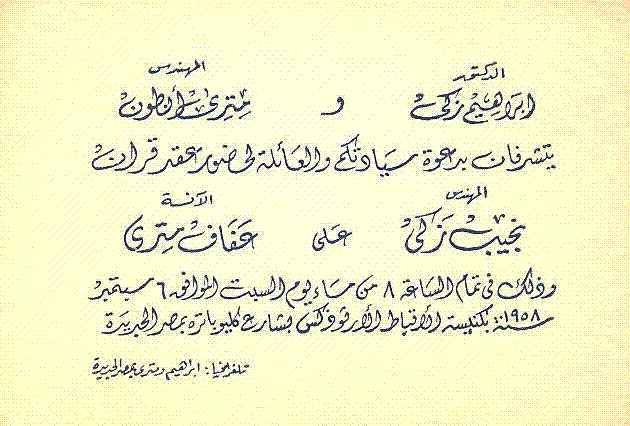 الدكتور المهندس
ابراهيم زكى و مترى أنطون
يتشرفان بدعوة سيادتكم والعائلة لحضور عقد قران
المهندس الآنسة
نجيب زكى على عفاف مترى
وذلك فى تمام الساعة ٨ من مساء يوم السبت الموافق ٦ سبتمبر
سنة ١٩٥٨ بكنيسة الأقباط الأرثوذكس بشارع كليوباتره بمصر الجديدة
تلغرافيا : ابراهيم ومترى بمصر الجديدة